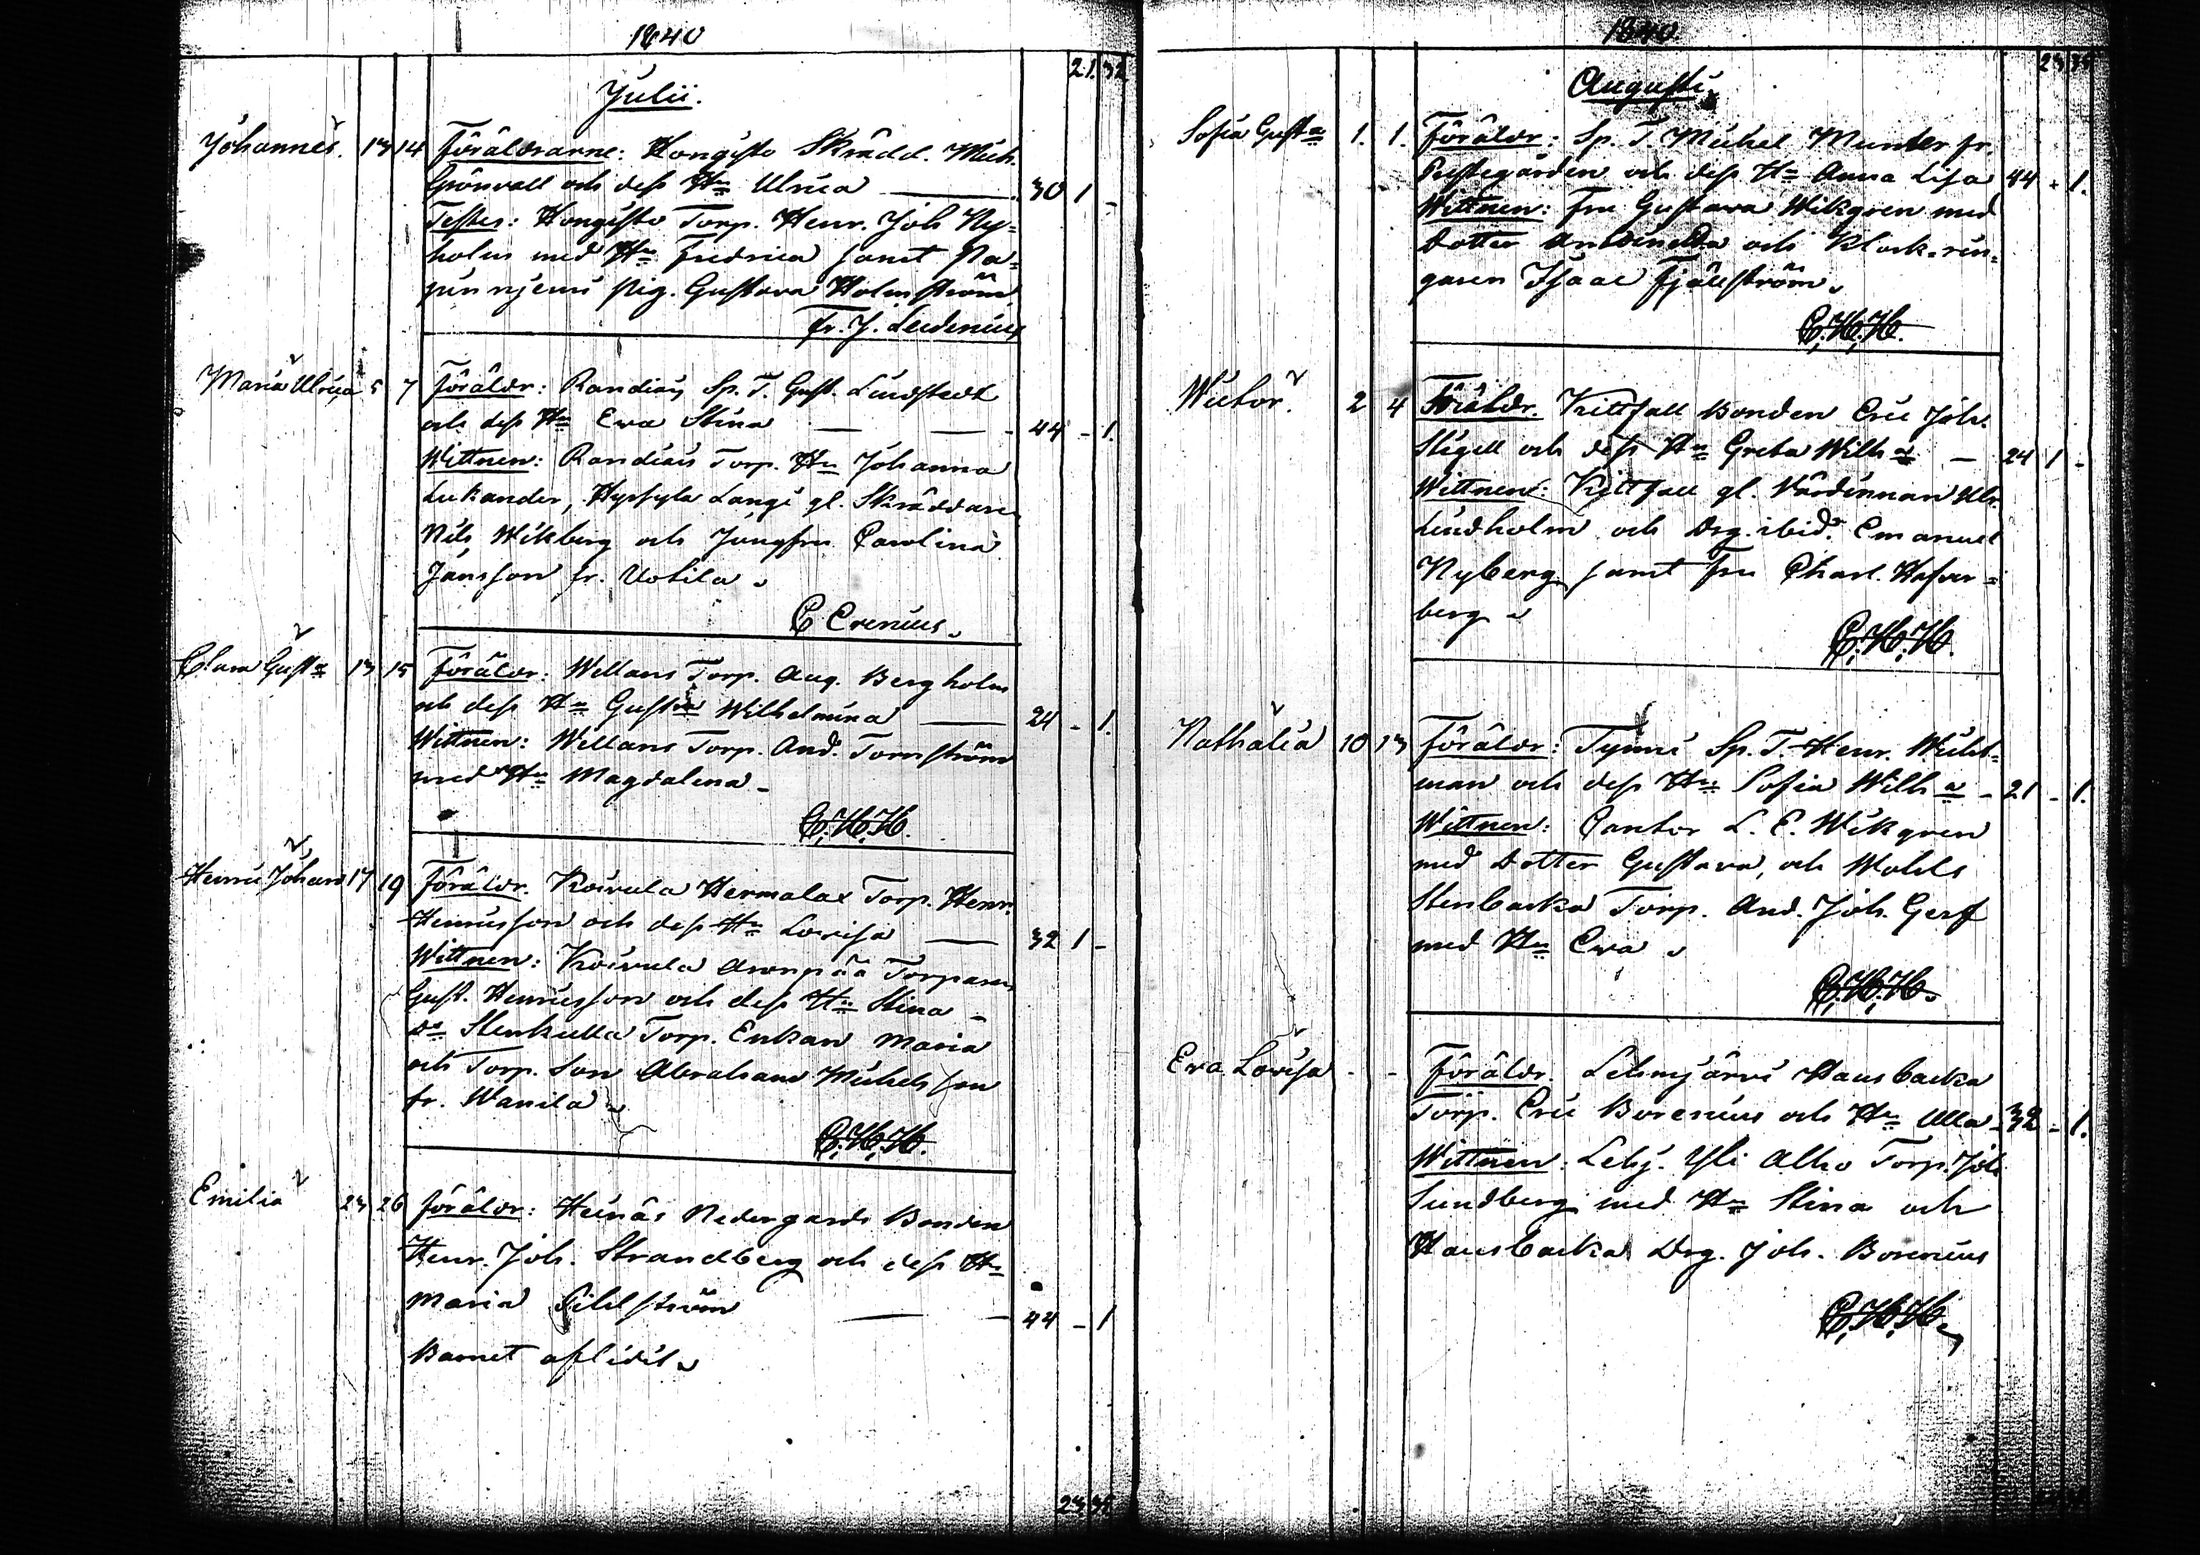 1840
21. 32
Julii.
Johannes. 13 14 Föräldrarne: Hongisto Skrädd. Mich.
Grönvall och dess Hu Ulrica — 30 1 -
Testes: Hongisto Torp. Henr. Joh Ny=
holm med Hu Fredrica samt Na=
junnjemi pig. Gustava Holmström
Fr. J. Ledenius
Maria Ulrica 5 7 Föräldr: Randiais Sp. T. Gust. Lindstedt
och dess Hu Ewa Stina — — - 44 - 1.
Wittnen: Randiais Torp. Hu Johanna
Lukander, Hyrsylä Långi gl. Skräddaren
Nils Wikberg och Jungfru Carolina
Jansson fr. Uotila
C Crenius.
Clara Gusta 13 15 Föräldr: Wellans Torp. Aug. Bergholm
och dess Hu Gustva Wilhelmina — 24 - 1.
Wittnen: Wellans Torp. And. Tornström
med Hu Magdalena -
C. H. H.
Henric Johan 17 19 Föräldr. Koivula Hermalax Torp. Henr.
Henricsson och dess Hu Lovisa — 32 1 -
Wittnen: Koivula Aronpää Torparen
Gust. Henricsson och dess Hu Stina -
Do Stenkulla Torp. Enkan Maria
och Torp. Son Abraham Michelsson
fr. Wanila
C. H. H.
Emilia 23 26 Föräldr: Heinäs Nedergårds Bonden
Henr. Joh. Strandberg och dess Hu
Maria Pihlström — - 44 - 1
Barnet aflidit
23 35
1840.
23 35
Augusti
Sofia Gusta 1. 1. Föräldr: Sp. T. Michel Munter fr.
Prestegården och dess Hu Anna Lisa 44 - 1.
Wittnen: Fru Gustava Wikgren med
Dotter och Klock.rin=
garen Isaac Fjällström
C. H. H.
Victor. 2 4 Föräldr. Kittfall Bonden Eric Joh.
Stigell och dess Hu Greta Wilha — 24 1 -
Wittnen: Kittfall gl. Värdinnan Ulr.
Lindholm och Drg. ibid. Emanuel
Nyberg samt Fru Charl. Hafver=
berg
C. H. H.
Nathalia 10 13 Föräldr: Tynni Sp. T. Henr. Wickt=
man och dess Hu Sofia Wilha - 21 - 1.
Wittnen: Cantor L. E. Wikgren
med Dotter Gustava, och Wohls
Stenbacka Torp. And. Joh. Gerff
med Hu Ewa
C. H. H.
Ewa Lovisa - - Föräldr. Lehmjärvi Hausbacka
Torp. Eric Borenius och Hu Ulla - 32 - 1.
Wittnen: Lehj. Yli Alho Torp. Joh
Sundberg med Hu Stina och
Hausbacka Drg. Joh. Borenius
C. H. H.